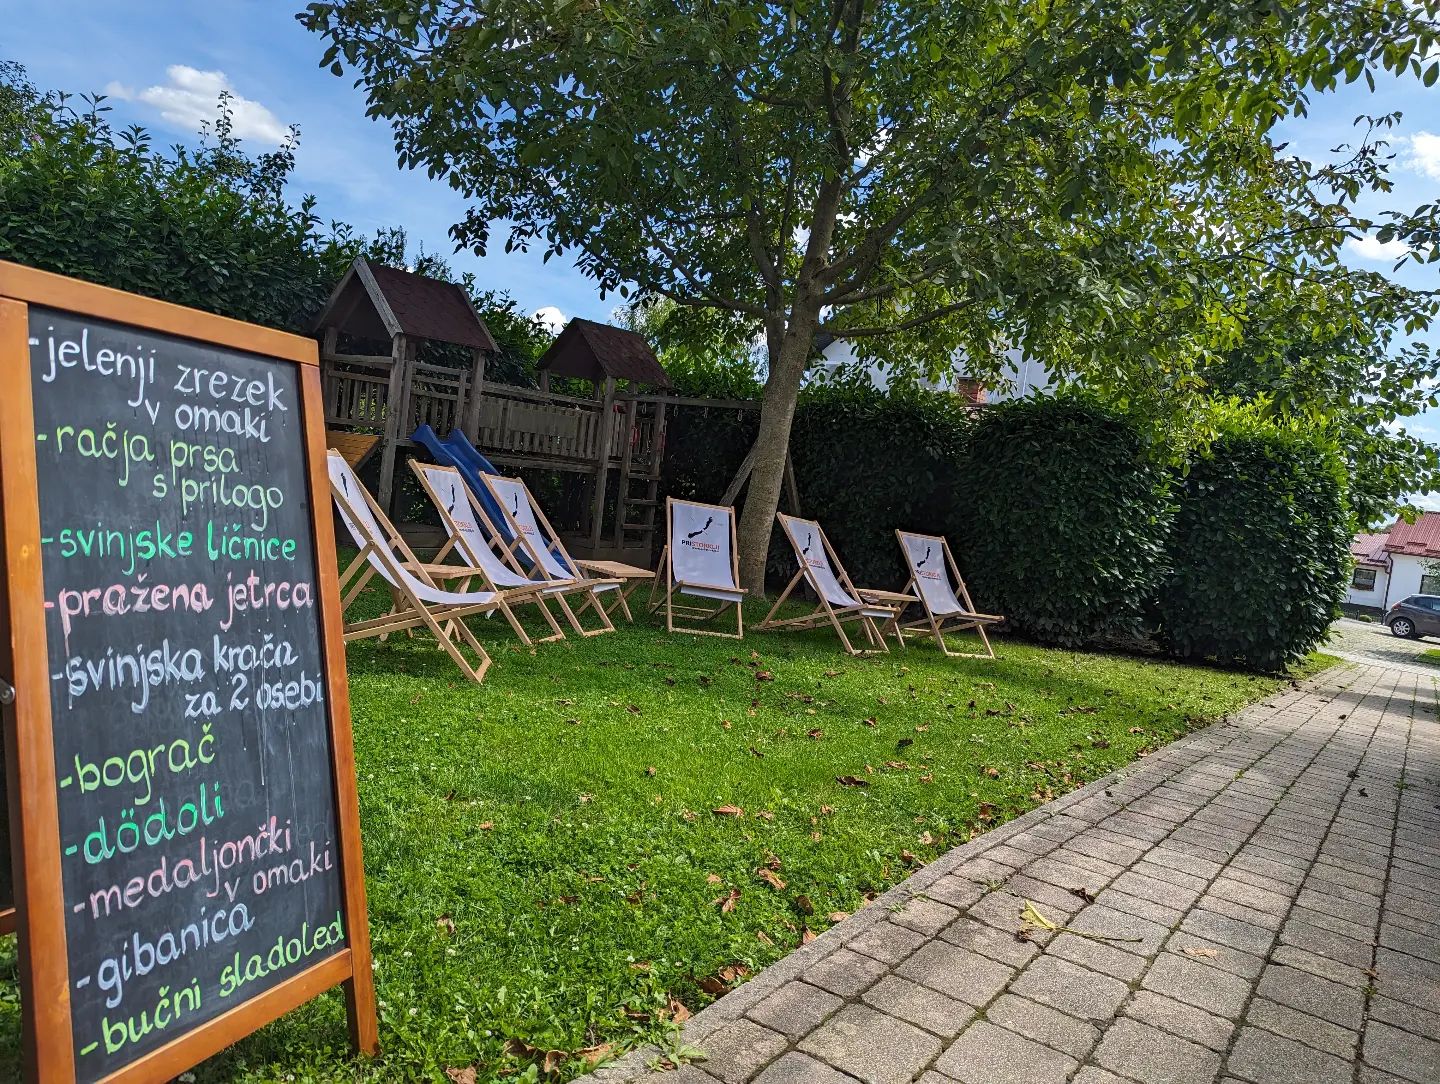 -jelenji zrezek
v omaki
-račja prsa
s prilogo
-svinjske ličnice
-pražena jetrca
-svinjska krača
za 2 osebi
-bograč
-dödoli
-medaljončki
v omaki
-gibanica
-bučni sladoled
PRI STORKLJI